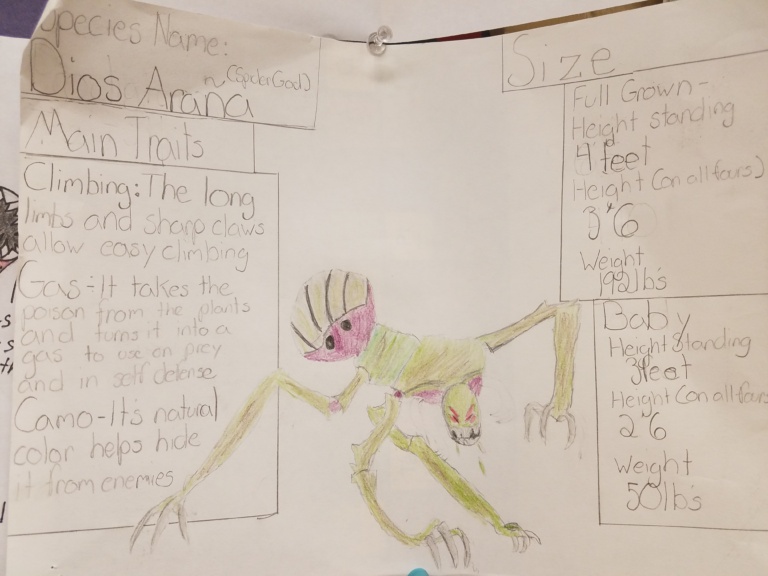 Species Name:
Dios Araña (Spider God)
Main Traits
Climbing: The long
limbs and sharp claws
allow easy climbing
Gas-It takes the
poison from the plants
and turns it into a
gas to use on prey
and in self defense
Camo-It's natural
color helps hide
it from enemies
Size
Full Grown-
Height standing
4 feet
Height (on all fours)
3"6
Weight
192lb's
Baby
Height Standing
3feet
Height (on all fours
2"6
Weight
50lb's